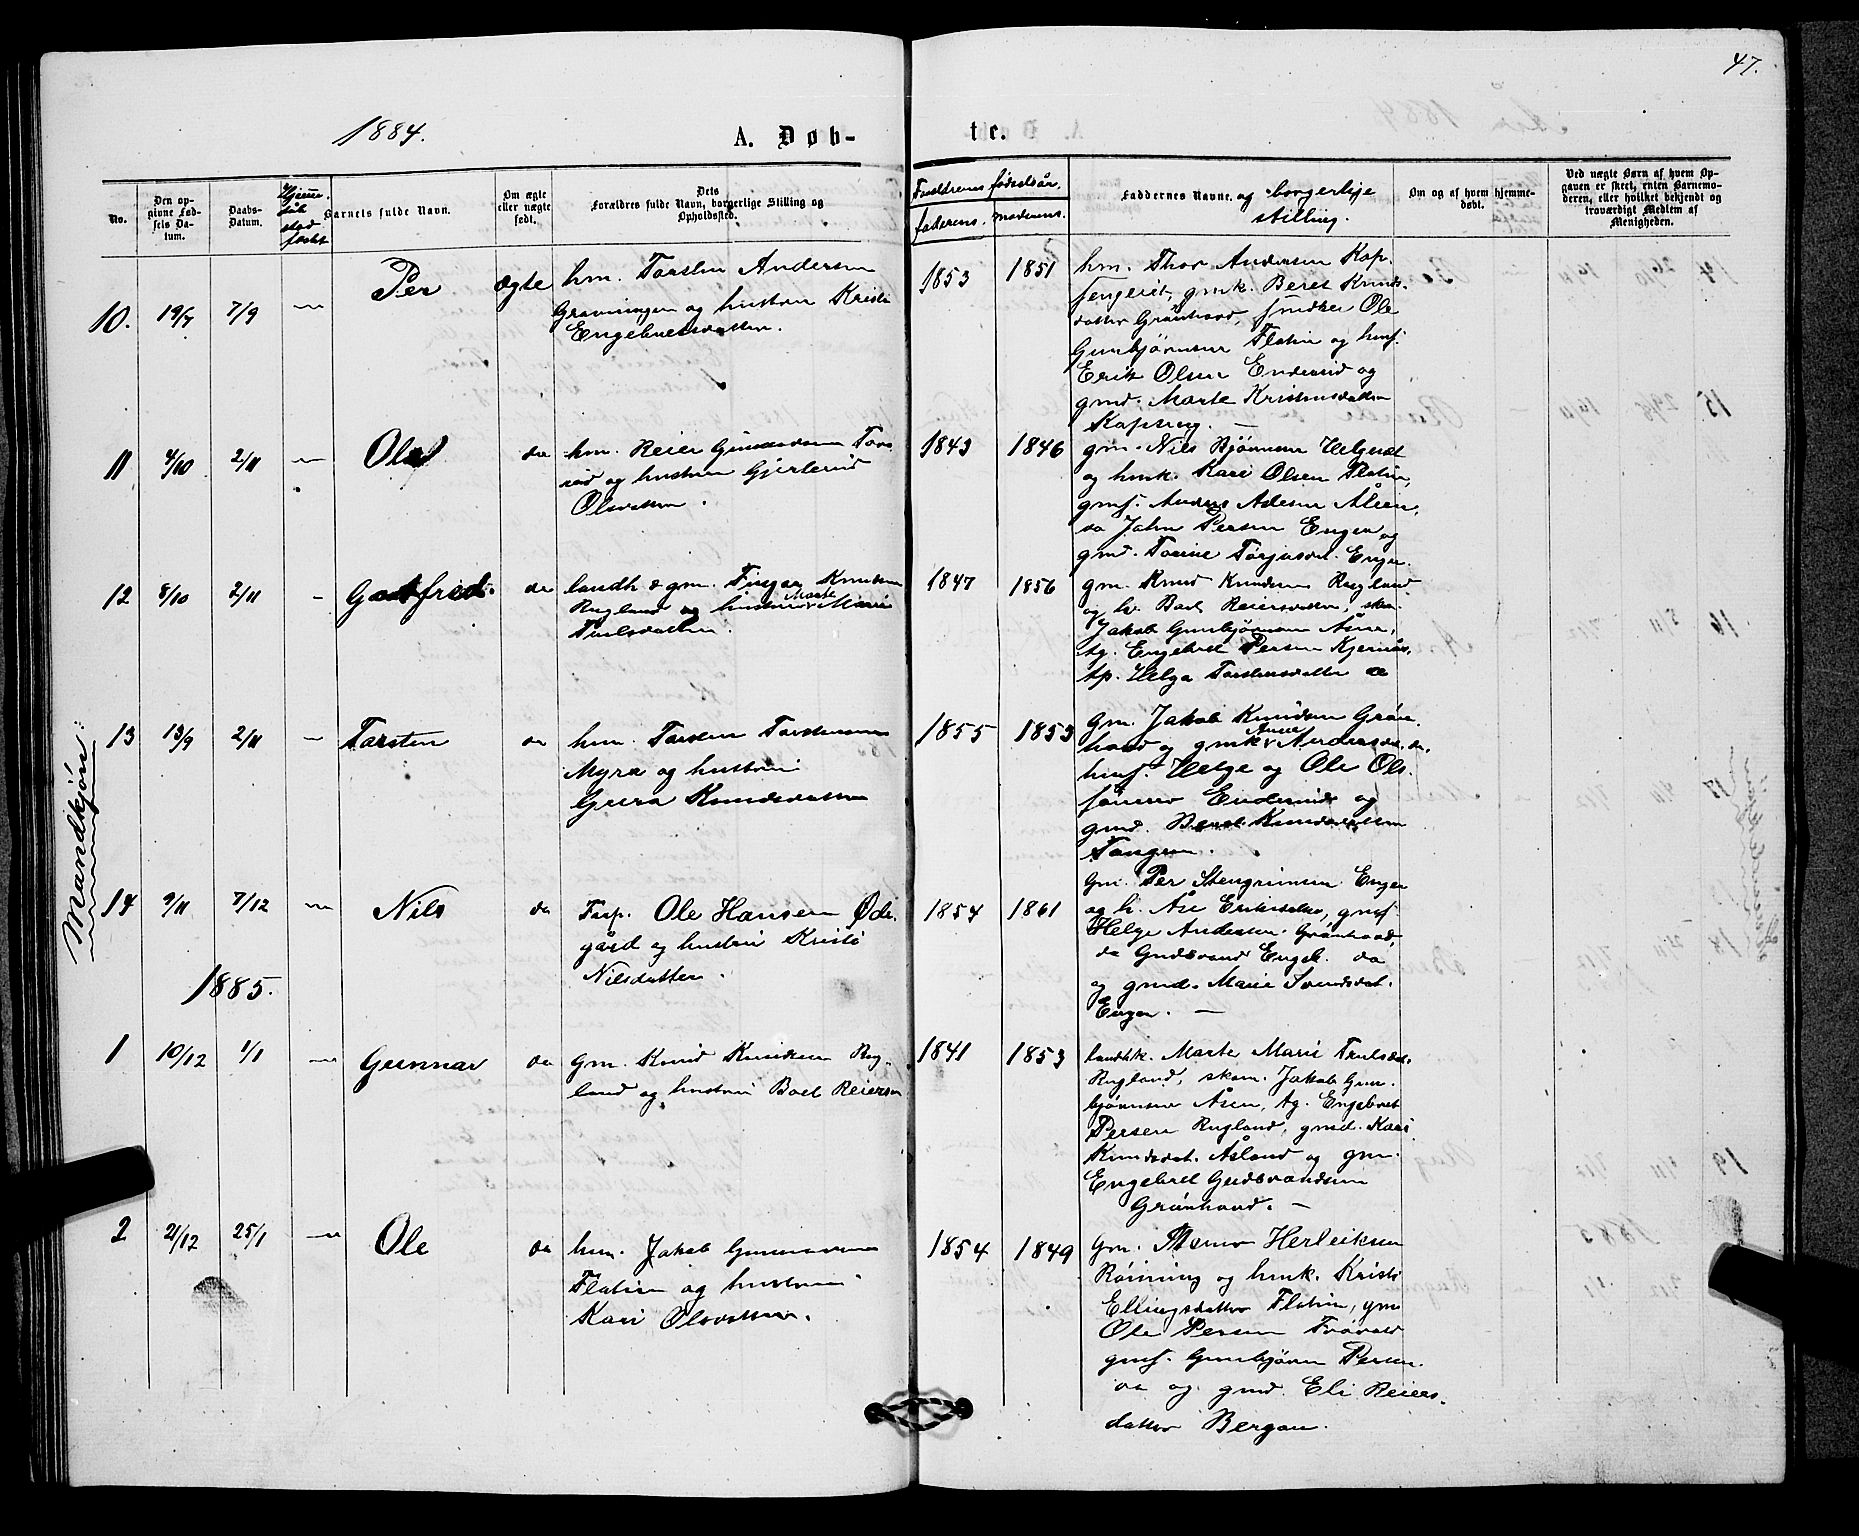 47.
1884.
A. Døb-
te.
No.
Den op-
givne Fød-
sels Da-
tum.
Daabs-
Datum.
Hjemme-
døb
sted
Barnets fulde Navn.
Om ægte
eller uægte
født.
Dets
Forældres fulde Navn, borgerlige Stilling og
Opholdssted.
Forældrenes fødselsår.
faderens.
moderens.
Faddernes Navne. og borgerlige
stilling.
Om og af hvem hjemme-
døbt.
Ved uægte Børn af hvem Op-
gaven er skeet, enten Barnemo-
deren, eller hvilket bekjendt og
troværdigt Medlem af
Menigheden.
Mandkjøn.
10.
19/7
7/9
Per
ægte
hm. Torsten Andersen
Gravningen og hustru Kristi
Engebretsdatter.
1853
1851
hm. Thor Andersen Kop-
sengeiet, gmk. Beret Knuds-
datter Grønhovd, snidker Ole
Gunbjørnsen Flatin og hmf.
Erik Olsen Enderud og
gmd. Marte Kristensdatter
Kopseng. —
11
4/10
2/11
Ole
da
hm. Reier Gunnarsen Tors-
rud og hustru Gjertrud
Olsdatter.
1843
1846
gm. Nils Bjørnsen Helgeset
og hmk. Kari Olsen Flatin,
gmf. Anders Adesen Åleen,
da John Persen Enger og
gmd. Torine Torjusdat. Enger
12
8/10
2/11
Gotfred.
da
landh. & gm. Fingar Knudsen
Rugland og hustru Marte Marie
Trulsdatter.
1847
1856
gm. Knud Knudsen Rugland
og h. Boel Reiersdatter, skom.
Jakob Gunbjørnsen Åsen,
tg. Engebret Persen Kjernås,
tp. Helga Torstensdatter
13
13/9
2/11
Torsten
da
hm. Torsten Torstensen
Myra og hustru
Guro Knudsdatter
1855
1853
Gm. Jakob Knudsen Grøn-
hovd og gmk. Anne Andersdat. da.
hmf. Helge og Ole Ols-
sønner Enderud og
gmd. Beret Knudsdatter
Tangen.
14
9/11
7/12
Nils
da
Forp. Ole Hansen Øde-
gård og hustru Kristi
Nilsdatter.
1854
1861
Gm. Per Stengrimsen Enger
og h. Åse Eriksdtr, gmf.
Helge Andersen Grønhovd,
da Gudbrand Engeb. da
og gmd. Marie Svendsdat.
Enger. —
1885.
1
10/12
1/1
Gunnar
da
gm. Knud Knudsen Rug-
land og hustru Boel Reiersen
1841
1853
landhk. Marte Marie Trulsdat.
Rugland, skom. Jakob Gun-
bjørnsen Åsen, tg. Engebret
Persen Rugland, gmd. Kari
Knudsdat. Åsland og gm.
Engebret Gudbrandsen
Grønhovd. —
2
21/12
25/1
Ole
da
hm. Jakob Gunnarsen
Flatin og hustru
Kari Olsdatter.
1854
1849
Gm. Herleiksen
Rønning og hmk. Kristi
Ellingsdatter Flatin, gm
Ole Persen
gmf. Gunbjørn Persen
da og gmd. Eli Reiers-
datter Bergan.